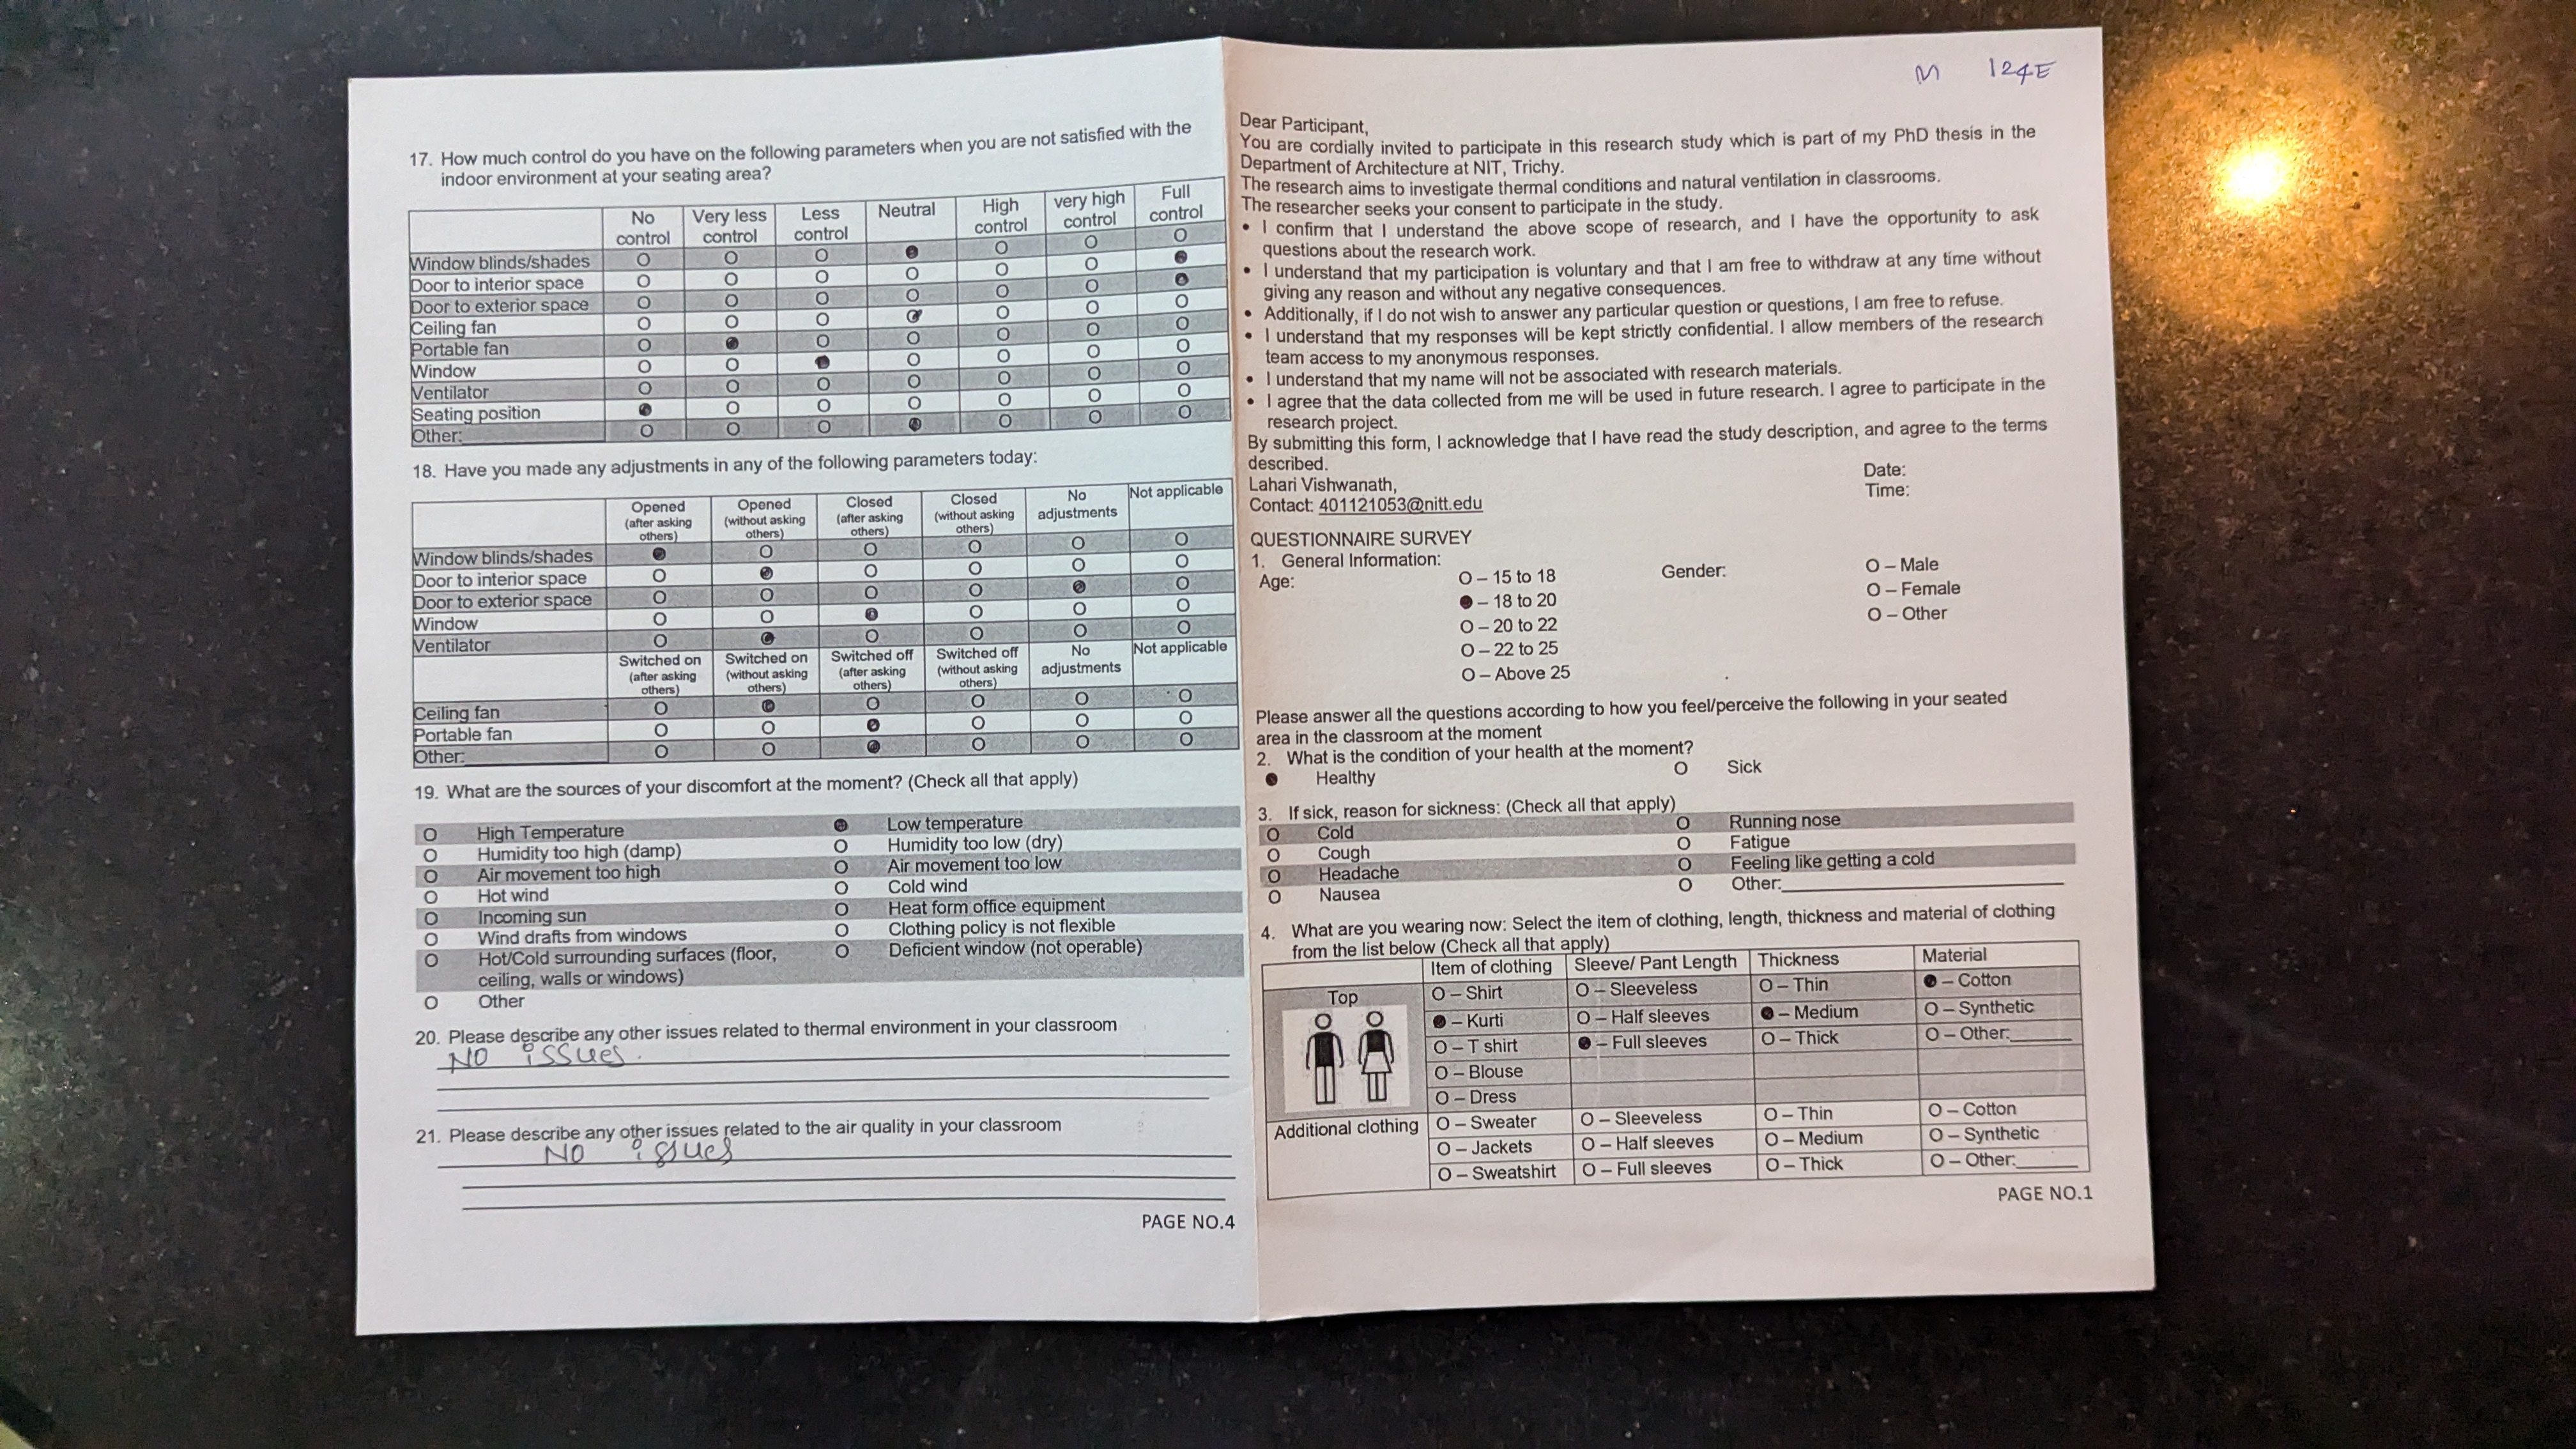 17. How much control do you have on the following parameters when you are not satisfied with the
indoor environment at your seating area?
No control Very less control Less control Neutral High control very high control Full control
Window blinds/shades O O O ● O O O
Door to interior space O O O O O O ●
Door to exterior space O O O O O O ●
Ceiling fan O O O ● O O O
Portable fan O ● O O O O O
Window O O ● O O O O
Ventilator O O O O O O O
Seating position ● O O O O O O
Other: O O O ● O O O
18. Have you made any adjustments in any of the following parameters today:
Opened (after asking others) Opened (without asking others) Closed (after asking others) Closed (without asking others) No adjustments Not applicable
Window blinds/shades ● O O O O O
Door to interior space O ● O O O O
Door to exterior space O O O O ● O
Window O O ● O O O
Ventilator O ● O O O O
Switched on (after asking others) Switched on (without asking others) Switched off (after asking others) Switched off (without asking others) No adjustments Not applicable
Ceiling fan O ● O O O O
Portable fan O O ● O O O
Other: O O ● O O O
19. What are the sources of your discomfort at the moment? (Check all that apply)
O High Temperature ● Low temperature
O Humidity too high (damp) O Humidity too low (dry)
O Air movement too high O Air movement too low
O Hot wind O Cold wind
O Incoming sun O Heat form office equipment
O Wind drafts from windows O Clothing policy is not flexible
O Hot/Cold surrounding surfaces (floor, O Deficient window (not operable)
ceiling, walls or windows)
O Other
20. Please describe any other issues related to thermal environment in your classroom
NO issues.
21. Please describe any other issues related to the air quality in your classroom
NO issues
PAGE NO.4
M 124E
Dear Participant,
You are cordially invited to participate in this research study which is part of my PhD thesis in the
Department of Architecture at NIT, Trichy.
The research aims to investigate thermal conditions and natural ventilation in classrooms.
The researcher seeks your consent to participate in the study.
• I confirm that I understand the above scope of research, and I have the opportunity to ask
questions about the research work.
• I understand that my participation is voluntary and that I am free to withdraw at any time without
giving any reason and without any negative consequences.
• Additionally, if I do not wish to answer any particular question or questions, I am free to refuse.
• I understand that my responses will be kept strictly confidential. I allow members of the research
team access to my anonymous responses.
• I understand that my name will not be associated with research materials.
• I agree that the data collected from me will be used in future research. I agree to participate in the
research project.
By submitting this form, I acknowledge that I have read the study description, and agree to the terms
described.
Date:
Lahari Vishwanath,
Time:
Contact: 401121053@nitt.edu
QUESTIONNAIRE SURVEY
1. General Information:
Age: O – 15 to 18 Gender: O – Male
● – 18 to 20 O – Female
O – 20 to 22 O – Other
O – 22 to 25
O – Above 25
Please answer all the questions according to how you feel/perceive the following in your seated
area in the classroom at the moment
2. What is the condition of your health at the moment?
● Healthy O Sick
3. If sick, reason for sickness: (Check all that apply)
O Cold O Running nose
O Cough O Fatigue
O Headache O Feeling like getting a cold
O Nausea O Other:
4. What are you wearing now: Select the item of clothing, length, thickness and material of clothing
from the list below (Check all that apply)
Item of clothing Sleeve/ Pant Length Thickness Material
Top O – Shirt O – Sleeveless O – Thin ● – Cotton
● – Kurti O – Half sleeves ● – Medium O – Synthetic
O – T shirt ● – Full sleeves O – Thick O – Other:
O – Blouse
O – Dress
Additional clothing O – Sweater O – Sleeveless O – Thin O – Cotton
O – Jackets O – Half sleeves O – Medium O – Synthetic
O – Sweatshirt O – Full sleeves O – Thick O – Other:
PAGE NO.1